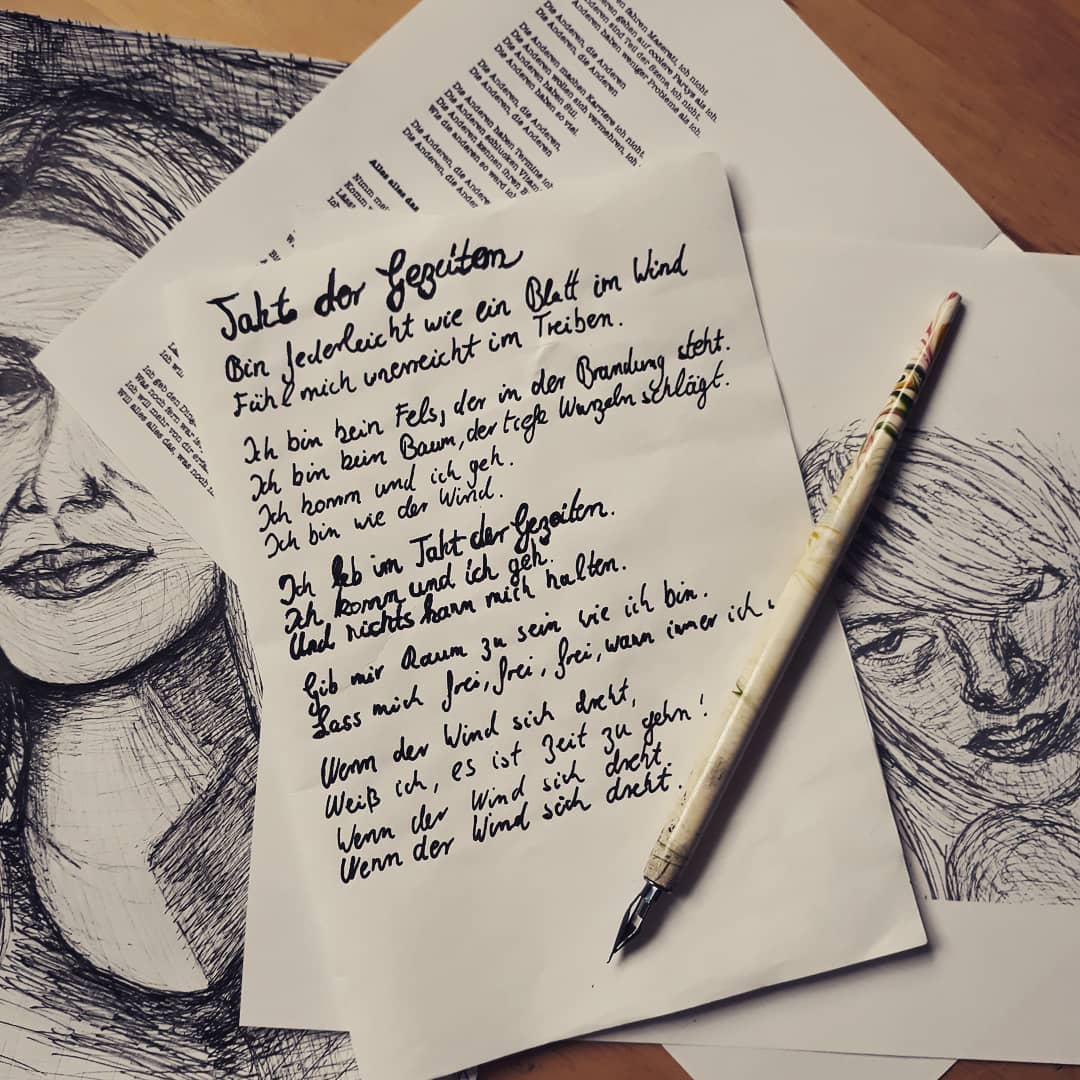 Die Anderen fahren Maserati, ich nicht.
gehen auf coolere Partys als ich.
Anderen sind Teil der Szene, ich nicht.
Anderen haben weniger Probleme als ich.
Die Anderen, die Anderen
Die Anderen, die Anderen
Die Anderen machen Karriere ich nicht.
Die Anderen wollen sich vermehren, ich
Die Anderen haben Stil.
Die Anderen haben so viel.
Die Anderen, die Anderen,
Die Anderen, die Anderen
Die Anderen haben Termine ich
Die Anderen schlucken
Die Anderen kennen ihren
Wie die anderen so werd ich
Die Anderen, die
Die Anderen, die
Alles alles das
Nimm
Komm
Ich will
Ich geb den Ding
Was noch fern war
Ich will mehr von dir
Will alles alles das, was noch
Takt der Gezeiten
Bin federleicht wie ein Blatt im Wind
Fühl mich unerreicht im Treiben.
Ich bin kein Fels, der in der Brandung steht.
Ich bin kein Baum, der tiefe Wurzeln schlägt.
Ich komm und ich geh.
Ich bin wie der Wind.
Ich leb im Takt der Gezeiten.
Ich komm und ich geh.
Und nichts kann mich halten.
Gib mir Raum zu sein wie ich bin.
Lass mich frei, frei, frei, wann immer ich
Wenn der Wind sich dreht,
Weiß ich, es ist Zeit zu gehn!
Wenn der Wind sich dreht.
Wenn der Wind sich dreht.